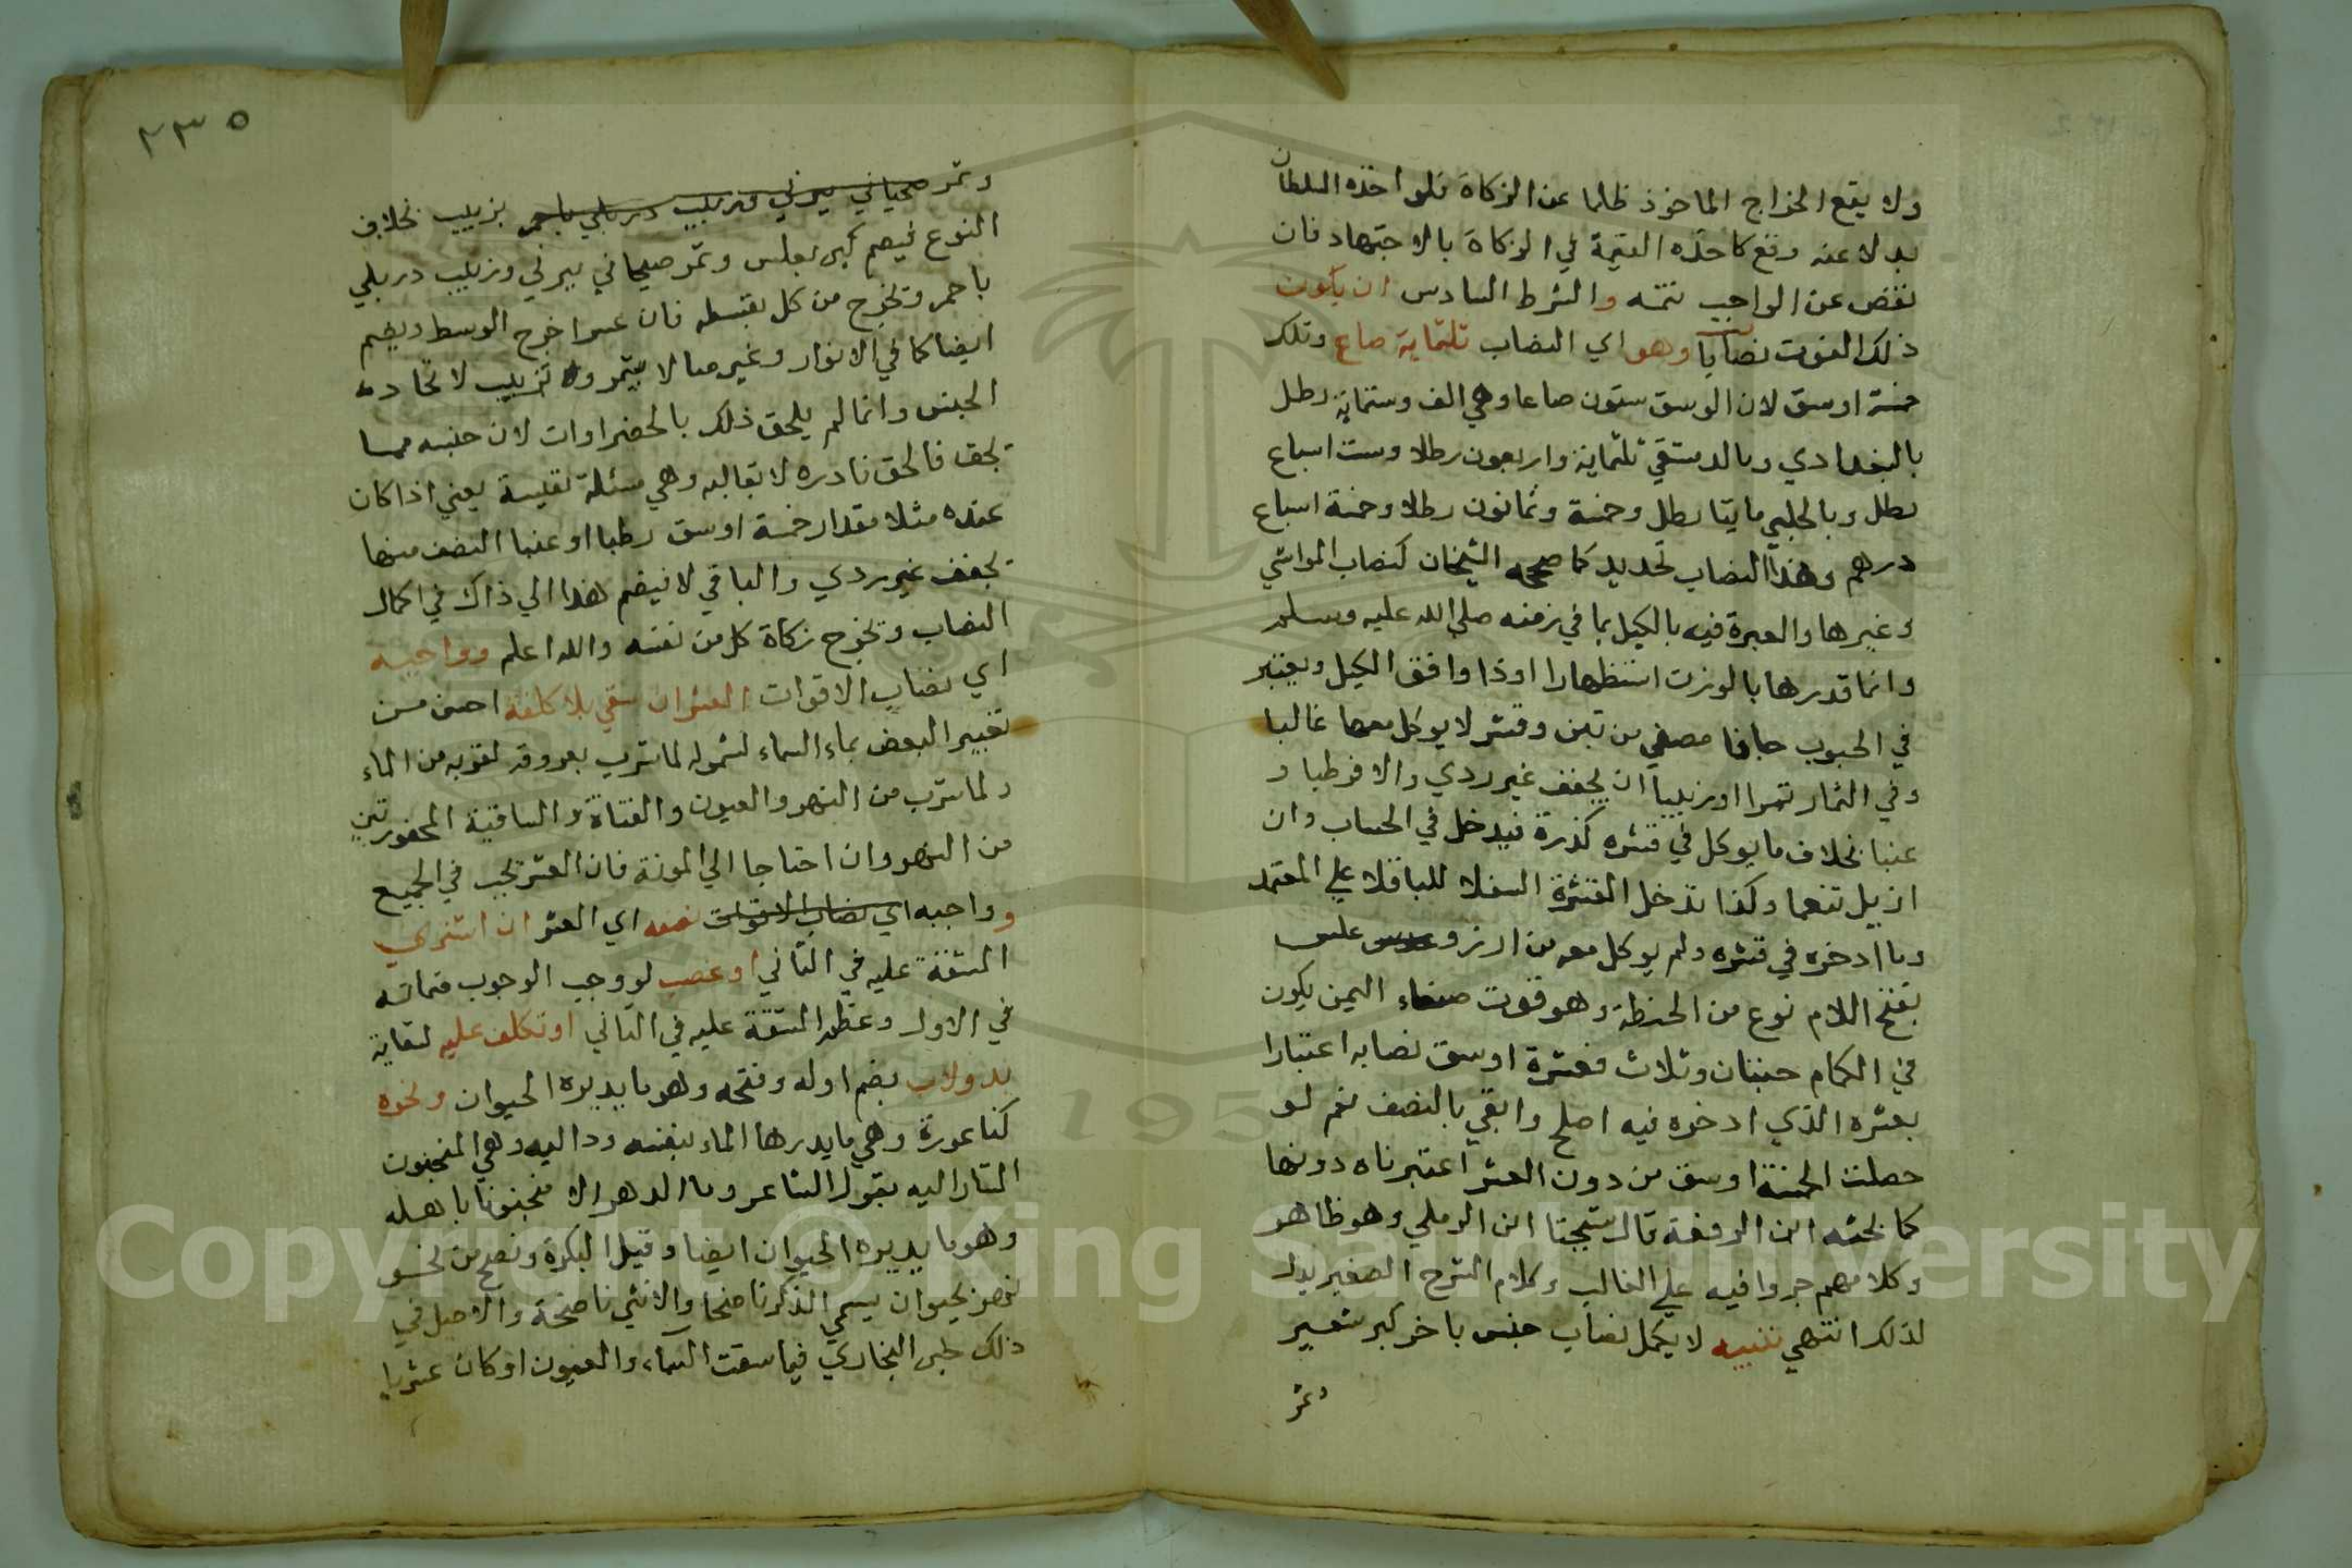 ولا يقع الخراج الماخوذ ظلما عن الزكاة فلو اخذه السلطان
بدلا عنه وقع كاخذه القيمة في الزكاة بالاجتهاد فان
نقص عن الواجب تممه والشرط السادس ان يكون
ذلك القوت نصابا وهو اي النصاب ثلثماية صاع وتلك
خمسة اوسق لان الوسق ستون صاعا وهي الف وستماية رطل
بالبغدادي وبالدمشقي ثلثماية واربعون رطلا وست اسباع
رطل وبالحلبي مايتا رطل وخمسة وثمانون رطلا وخمسة اسباع
درهم وهذا النصاب تحديد كما صححه الشيخان كنصاب المواشي
وغيرها والعبرة فيه بالكيل بما في زمنه صلى الله عليه وسلم
وانما قدرها بالوزن استظهارا او اذا وافق الكيل ويعتبر
في الحبوب جافا مصفي من تبن وقشر لا يوكل معها غالبا
وفي الثمار تمرا او زبيبا ان يجفف غير ردي والا فرطبا و
عنبا بخلاف ما يوكل في قشره كذرة فيدخل في الحساب وان
ازيل تنعما وكذا تدخل القشرة السفلا للباقلا علي المعتمد
وما ادخره في قشره ولم يوكل معه من ارز و علس
بفتح اللام نوع من الحنطة وهو قوت صنعاء اليمن يكون
في الكمام حبتان وثلاث فعشرة اوسق نصابه اعتبارا
بعشره الذي ادخره فيه اصلح وابقي بالنصف نعم لو
حصلت الخمسة اوسق من دون العشر اعتبرناه دونها
كما بحثه ابن الرفعة قال شيخنا ابن الرملي وهو ظاهر
وكلامهم جروا فيه علي الغالب وكلام الشرح الصغير يدل
لذلك انتهي تنبيه لا يكمل نصاب جنس باخر كبر شعير
وتمر
٢٣٥
وتمر صحياني ببرني وزبيب دربلي باحمر بزبيب بخلاف
النوع فيضم كبر بعلس وتمر صيحاني ببرني وزبيب دربلي
باحمر وتخرج من كل بقسطه فان عسر اخرج الوسط ويضم
ايضا كما في الانوار وغيره ما لا يتتمر ولا تزبيب لاتحاده
الجنس وانما لم يلحق ذلك بالخضراوات لان جنسه مما
يجف فالحق نادره لا بقالبه وهي مسئلة نفيسة يعني اذا كان
عنده مثلا مقدار خمسة اوسق رطبا او عنبا النصف منها
يجفف غير ردي والباقي لا فيضم هذا الي ذاك في اكمال
النصاب وتخرج زكاة كل من نفسه والله اعلم وواجبه
اي نصاب الاقوات العشر ان سقي بلا كلفة احسن من
تعبير البعض بماء السماء لشموله لما شرب بعروقه لقربه من الماء
ولما شرب من النهر والعيون والقناة والساقية المحفورتين
من النهر وان احتاجا الي المونة فان العشر تجب في الجميع
وواجبه اي نصاب الاقوات نصفه اي العشر ان اشتري
المشقة عليه في الثاني او غصب لووجب الوجوب ضمانه
في الاول وعظم المشقة عليه في الثاني او تكلف عليه لسقاية
بدولاب بضم اوله وفتحه وهو ما يديره الحيوان ونحوه
كناعورة وهي ما يديرها الماء بنفسه وداليه وهي المنجنون
المشار اليه بقول الشاعر وما الدهر الا منجنونا باهله
وهو ما يديره الحيوان ايضا وقيل البكرة ونضح من نحو
نهر بحيوان يسمي الذكر ناضحا والانثي ناضحة والاصل في
ذلك خبر البخاري فيما سقت السماء والعيون او كان عثريا
Copyright © King Saud University
195